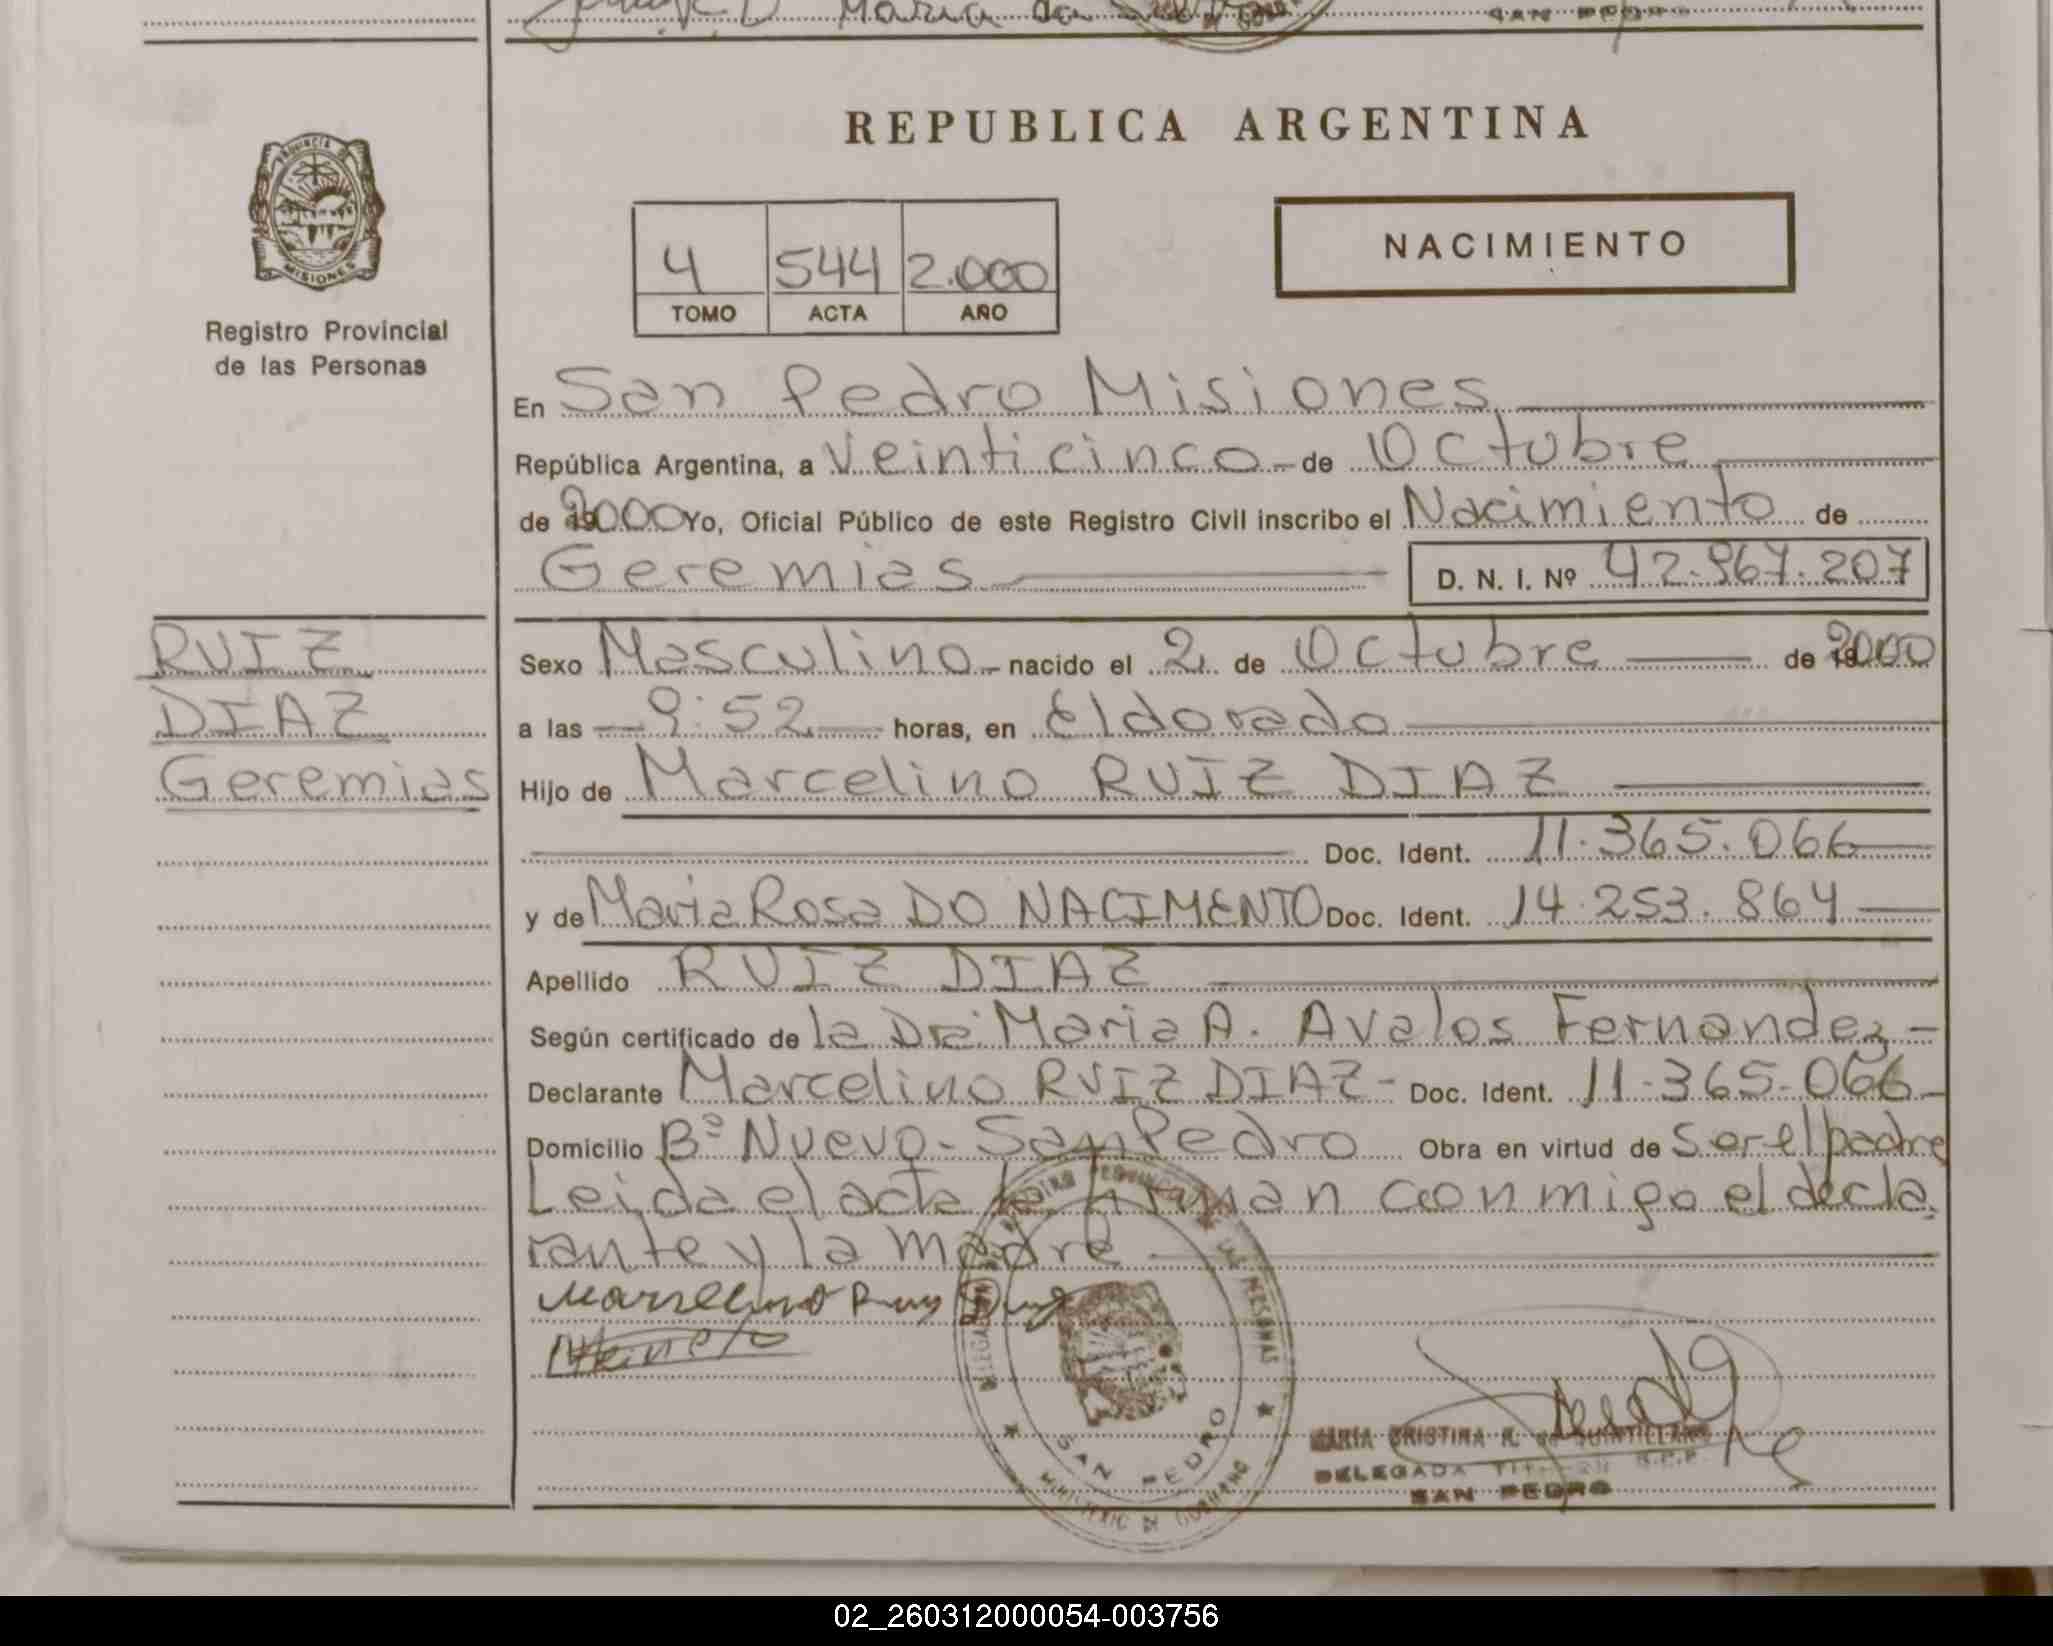 Maria da
SAN PEDRO
REPUBLICA ARGENTINA
PROVINCIA DE
MISIONES
Registro Provincial
de las Personas
4 544 2.000
TOMO ACTA AÑO
NACIMIENTO
En San Pedro Misiones
República Argentina, a Veinticinco de Octubre
de 2000 Yo, Oficial Público de este Registro Civil inscribo el Nacimiento de
Geremias D. N. I. Nº 42.967.207
RUIZ
DIAZ
Geremias
Sexo Masculino nacido el 2 de Octubre de 2000
a las 9:52 horas, en Eldorado
Hijo de Marcelino RUIZ DIAZ
Doc. Ident. 11.365.066
y de Maria Rosa DO NACIMENTO Doc. Ident. 14.253.864
Apellido RUIZ DIAZ
Según certificado de la Dra. Maria A. Avalos Fernandez
Declarante Marcelino RUIZ DIAZ - Doc. Ident. 11.365.066
Domicilio Bº Nuevo - San Pedro Obra en virtud de Ser el padre
Leida el acta la firman conmigo el decla
rante y la madre
SAN PEDRO
MARIA CRISTINA R. de QUINTILLAN
DELEGADA TITULAR R.P.P.
SAN PEDRO
02_260312000054-003756